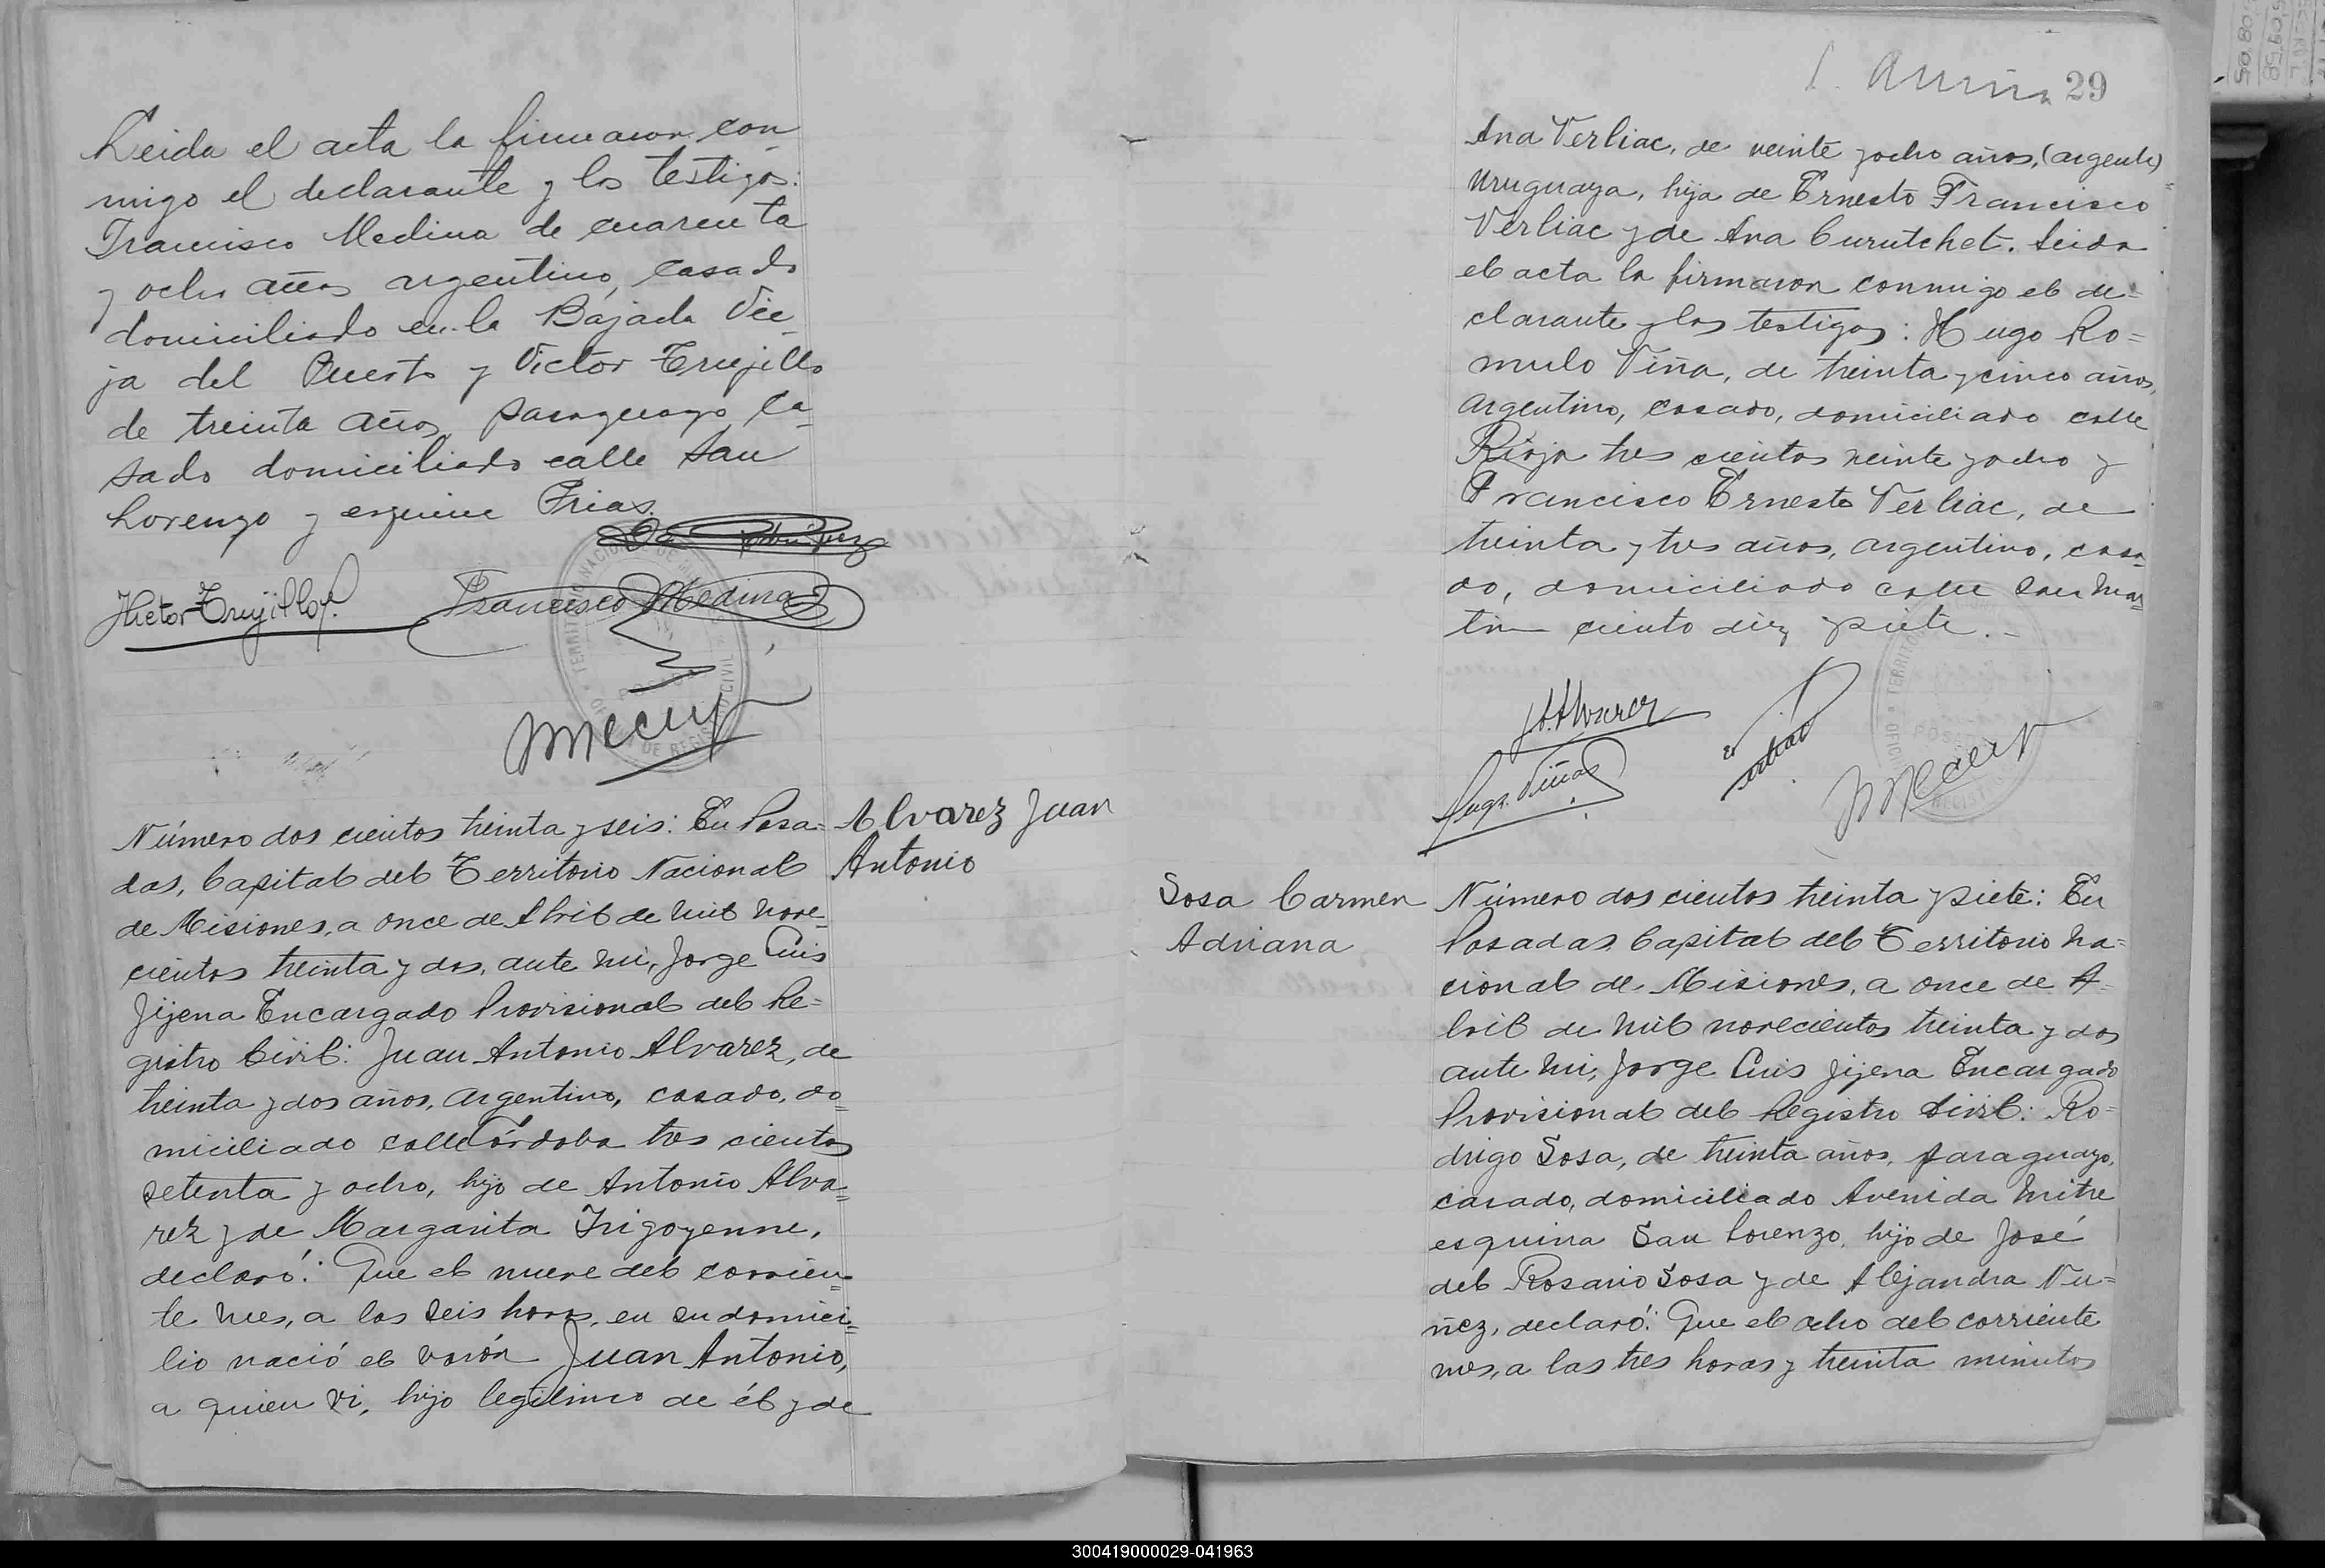 Leida el acta la firmaron con
migo el declarante y los testigos:
Francisco Medina de cuarenta
y ocho años argentino, casado
domiciliado en la Bajada Vie
ja del Puerto y Victor Trujillo
de treinta años, paraguayo ca
sado domiciliado calle San
Lorenzo y esquina Frias.
Victor Trujillo
Francisco Medina
Número dos cientos treinta y seis: En Posa=
das, Capital del Territorio Nacional
de Misiones, a once de Abril de mil nove
cientos treinta y dos, ante mi, Jorge Luis
Jijena Encargado Provisional del Re=
gistro Civil: Juan Antonio Alvarez, de
treinta y dos años, argentino, casado, do=
miciliado calle Córdoba tres cientos
setenta y ocho, hijo de Antonio Alva=
rez y de Margarita Irigoyenne,
declaró: Que el nueve del corrien=
te mes, a las seis horas, en su domici=
lio nació el varón Juan Antonio,
a quien vi, hijo legitimo de él y de
Alvarez Juan
Antonio
29
Ana Verliac, de veinte y ocho años, (argent)
uruguaya, hija de Ernesto Francisco
Verliac y de Ana Curutchet. Leida
el acta la firmaron conmigo el de=
clarante y los testigos: Hugo Ro=
mulo Viña, de treinta y cinco años,
argentino, casado, domiciliado calle
Rioja tres cientos veinte y ocho y
Francisco Ernesto Verliac, de
treinta y tres años, argentino, casa
do, domiciliado calle San Mar=
tin ciento diez y siete.-
J. A. Alvarez
Hugo Viña
Sosa Carmen
Adriana
Número dos cientos treinta y siete: En
Posadas, Capital del Territorio Na=
cional de Misiones, a once de A=
bril de mil novecientos treinta y dos
ante mi, Jorge Luis Jijena Encargado
Provisional del Registro Civil: Ro=
drigo Sosa, de treinta años, paraguayo,
casado, domiciliado Avenida Mitre
esquina San Lorenzo, hijo de José
del Rosario Sosa y de Alejandra Nu=
ñez, declaró: Que el ocho del corriente
mes, a las tres horas y treinta minutos
300419000029-041963